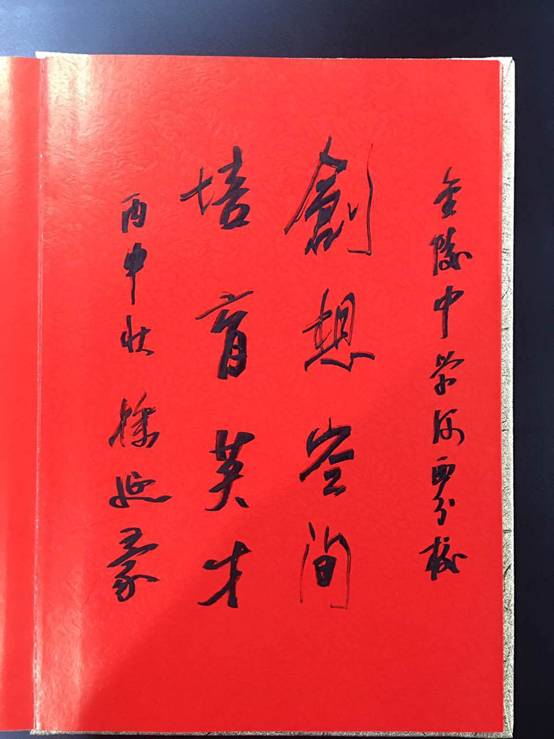 金陵中学河西分校
創想空间
培育英才
丙申秋 徐延豪